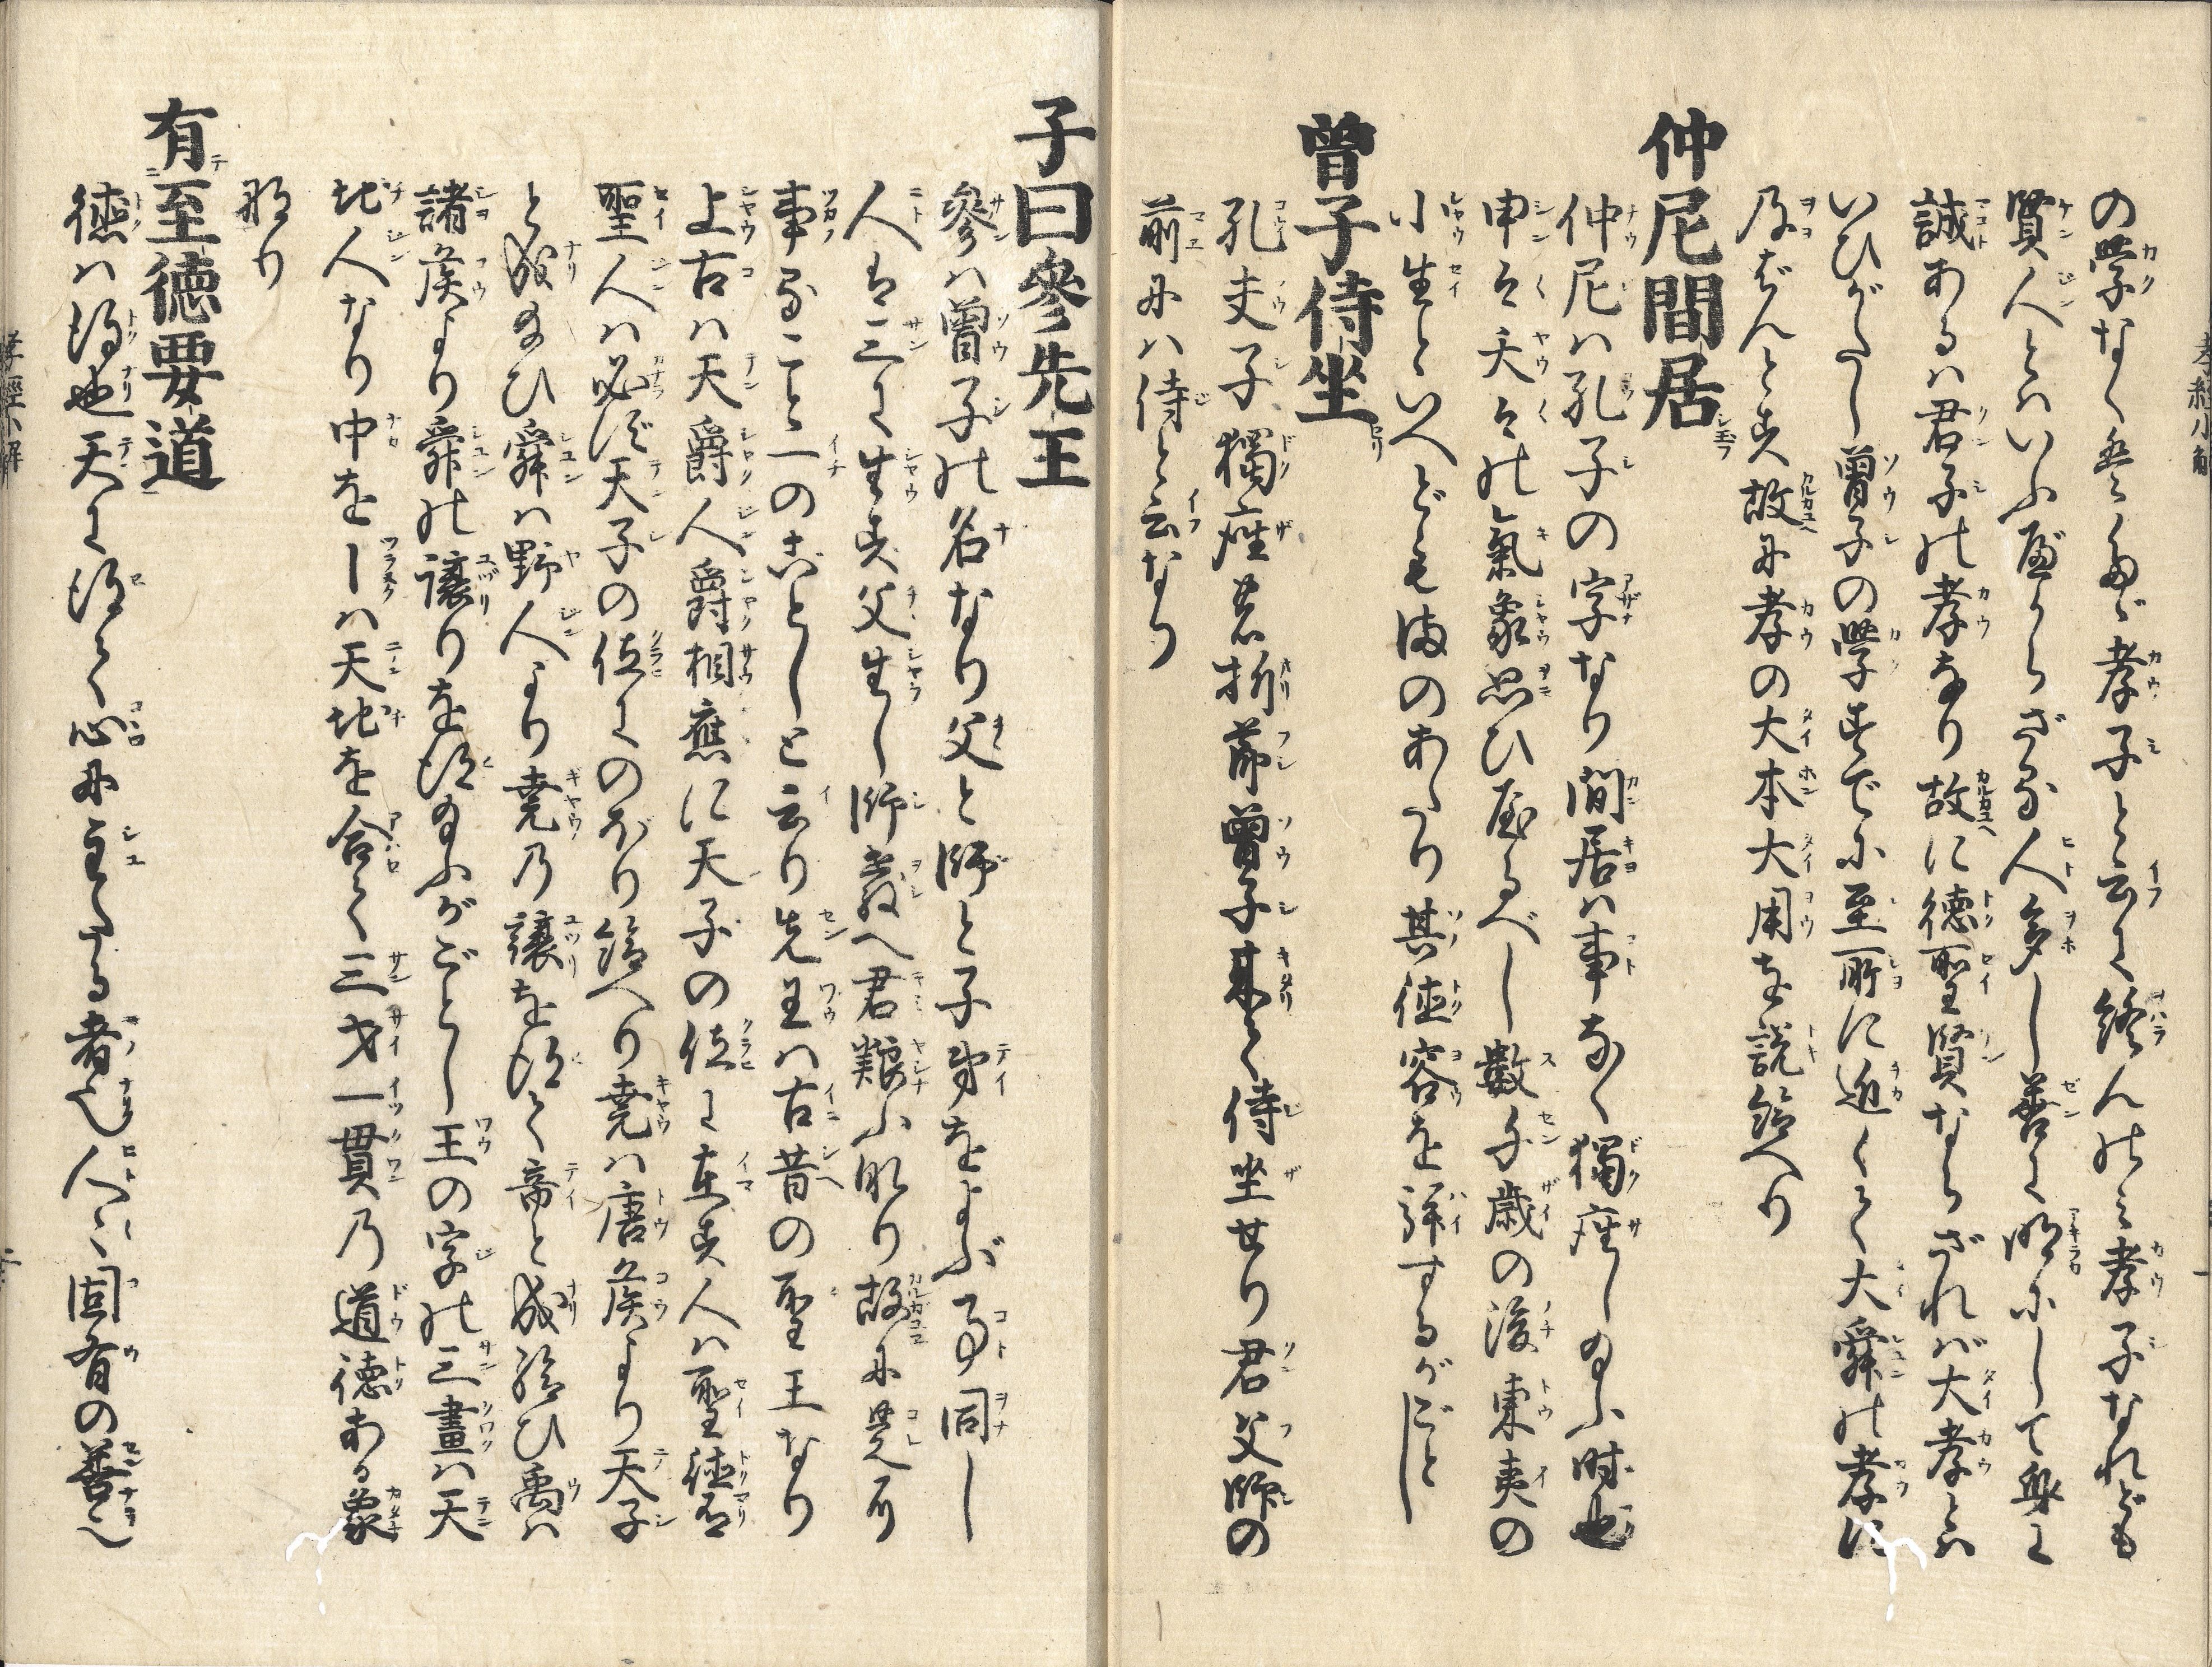 の学なく共たゞ孝子と云て終んのミ孝子なれども
賢人とハいふ應からざる人多し善く明にして身に
誠あるハ君子の孝なり故に徳聖賢ならざれバ大孝とハ
いひがたし曽子の学すでに至所に近くて大舜の孝に
及ばんとす故に孝の大本大用を説給へり
仲尼間居
仲尼ハ孔子の字なり間居ハ事なく獨座し給ふ時也
申々夭々の氣象思ひ屋るべし數千歳の後東夷の
小生といへどもまのあたり其徳容を拝するがごとし
曽子侍坐
孔夫子獨座若折節曽子來て侍坐せり君父師の
前にハ侍と云なり
子曰參先王
參ハ曽子の名なり父と師と子弟をよぶ事同し
人は三に生す父生し師教へ君粮ふなり故に是に
事ること一のごとしと云り先王ハ古昔の聖王なり
上古ハ天爵人爵相應に天子の位に在す人ハ聖徳有
聖人ハ必ず天子の位にのぼり給へり堯ハ唐侯より天子
と成給ひ舜ハ野人より堯乃譲を得て帝と成給ひ禹ハ
諸侯より舜の譲りを得給ふがごとし王の字の三畫ハ天
地人なり中を｜ハ天地を合て三才一貫乃道徳ある象
なり
有至徳要道
徳ハ得也天に得て心に主たる者也人々固有の善也